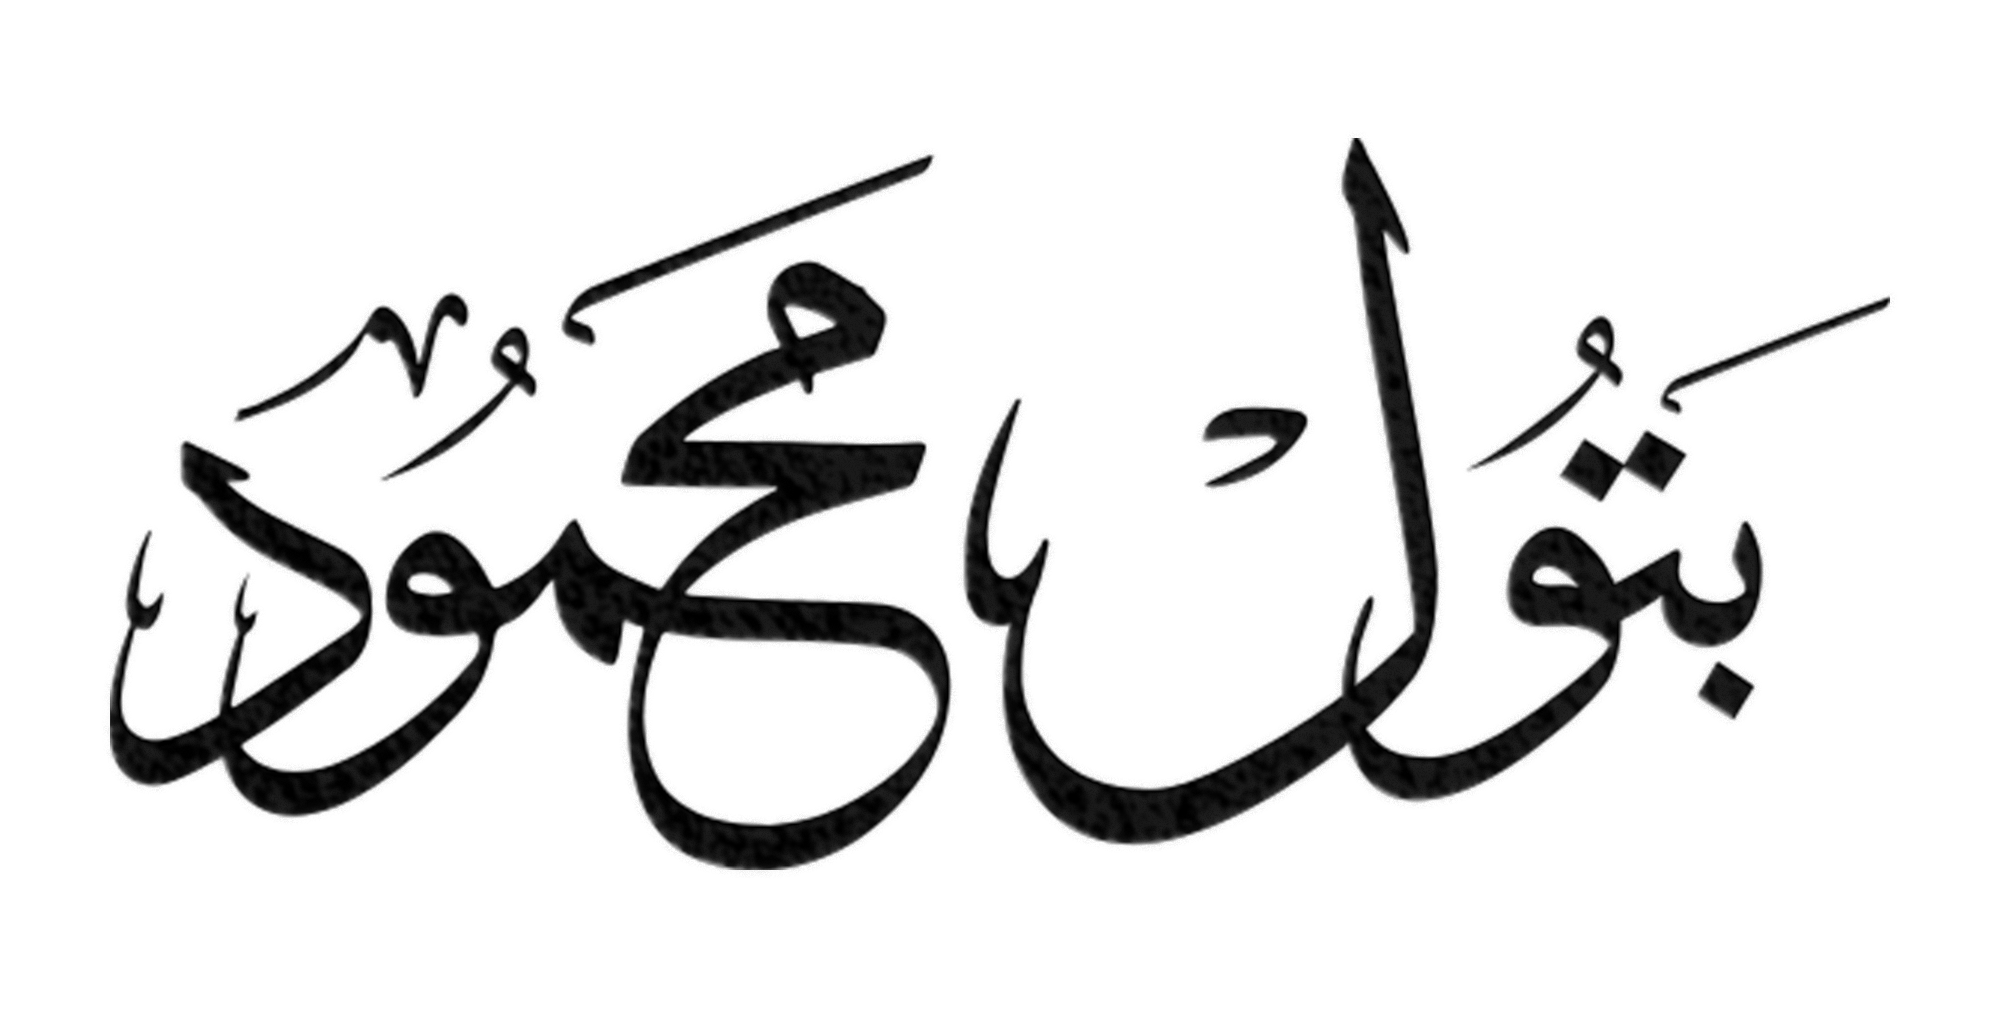 بَتُولْ مَحمُود